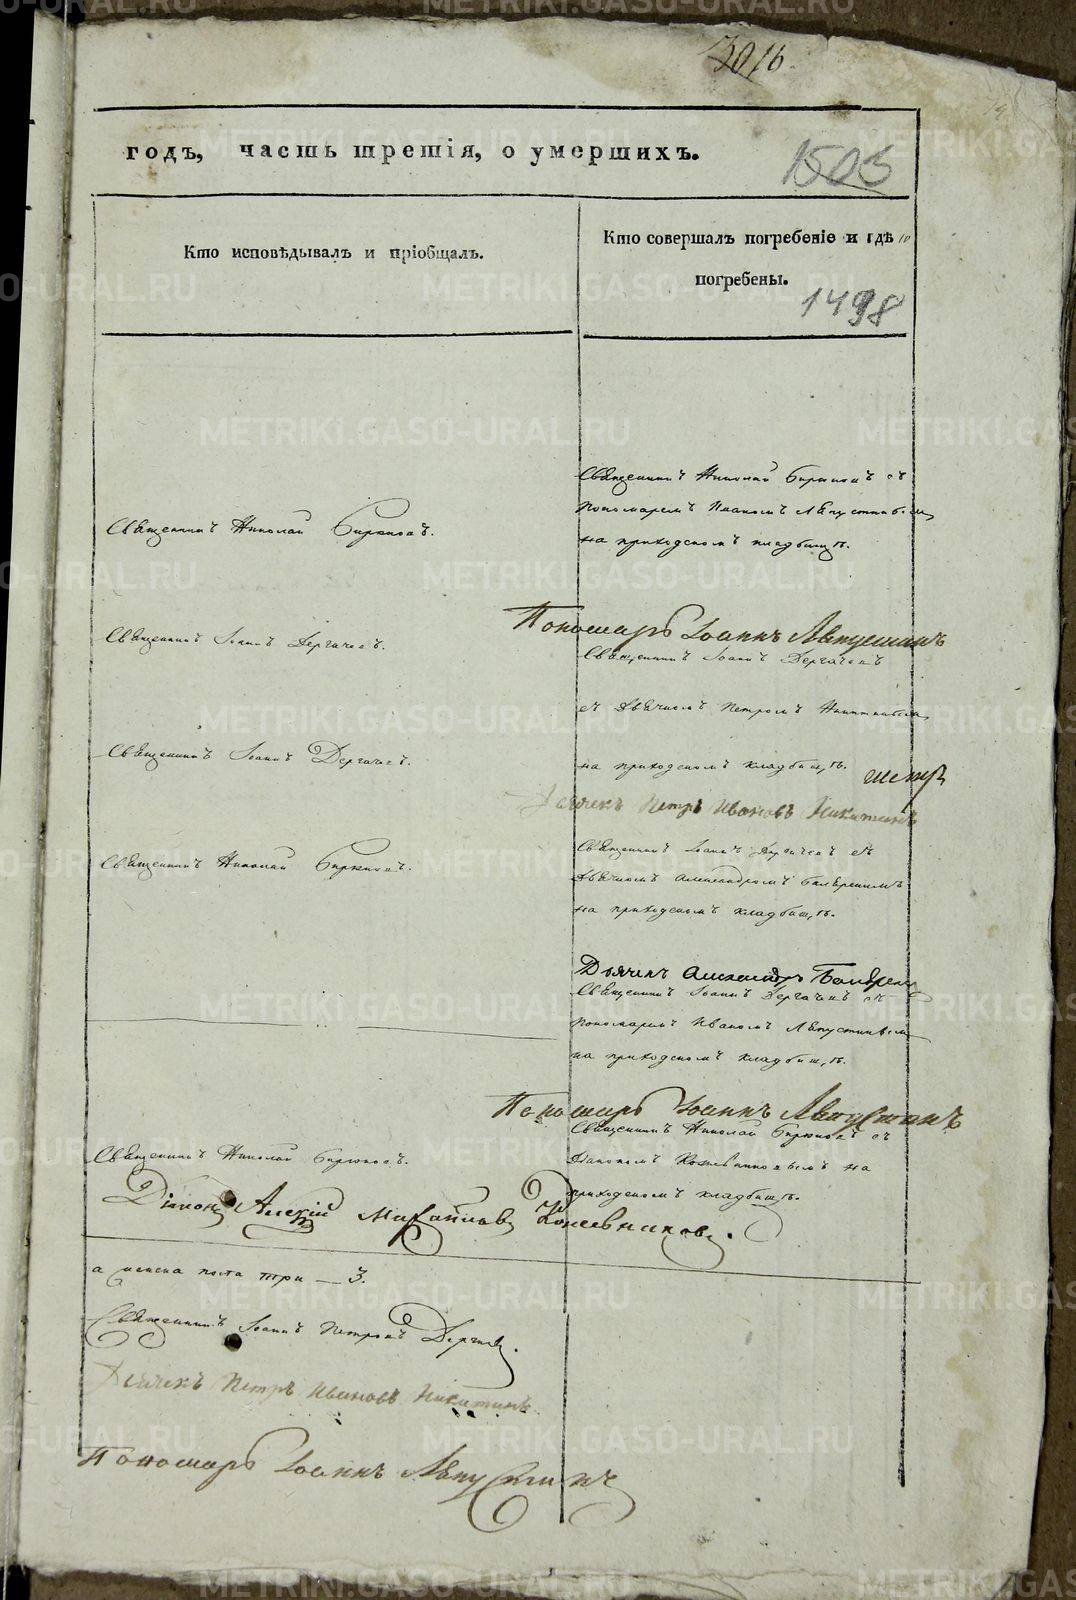 3016
годъ, часть третія, о умершихъ.
1505
Кто исповѣдывалъ и пріобщалъ.
Кто совершалъ погребеніе и гдѣ
погребены.
1498
Священникъ Николай Бирюковъ съ
Пономаремъ Иваномъ Лѣпустинымъ
на приходскомъ кладбищѣ.
Священникъ Николай Бирюковъ.
Пономарь Іоаннъ Лѣпустинъ
Священникъ Іоаннъ Дергачевъ.
Священникъ Іоаннъ Дергачевъ
съ Дьячкомъ Петромъ Никитинымъ
на приходскомъ кладбищѣ.
Священникъ Іоаннъ Дергачевъ.
Дьячекъ Петръ Ивановъ Никитинъ
Священникъ Іоаннъ Дергачевъ съ
Дьячкомъ Александромъ
на приходскомъ кладбищѣ.
Священникъ Николай Бирюковъ.
Дьячекъ Александръ
Священникъ Іоаннъ Дергачевъ съ
Пономаремъ Иваномъ Лѣпустинымъ
на приходскомъ кладбищѣ.
Пономарь Іоаннъ Лѣпустинъ
Священникъ Николай Бирюковъ съ
Діакономъ Кожевниковымъ на
приходскомъ кладбищѣ.
Священникъ Николай Бирюковъ.
Діаконъ Алексій Михайловъ Кожевниковъ.
а женска пола три — 3.
Священникъ Іоаннъ Петровъ Дергачевъ.
Дьячекъ Петръ Ивановъ Никитинъ
Пономарь Іоаннъ Лѣпустинъ
METRIKI.GASO-URAL.RU